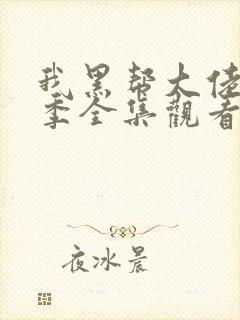 我黑帮大佬
季全集觀看
夜冰晨